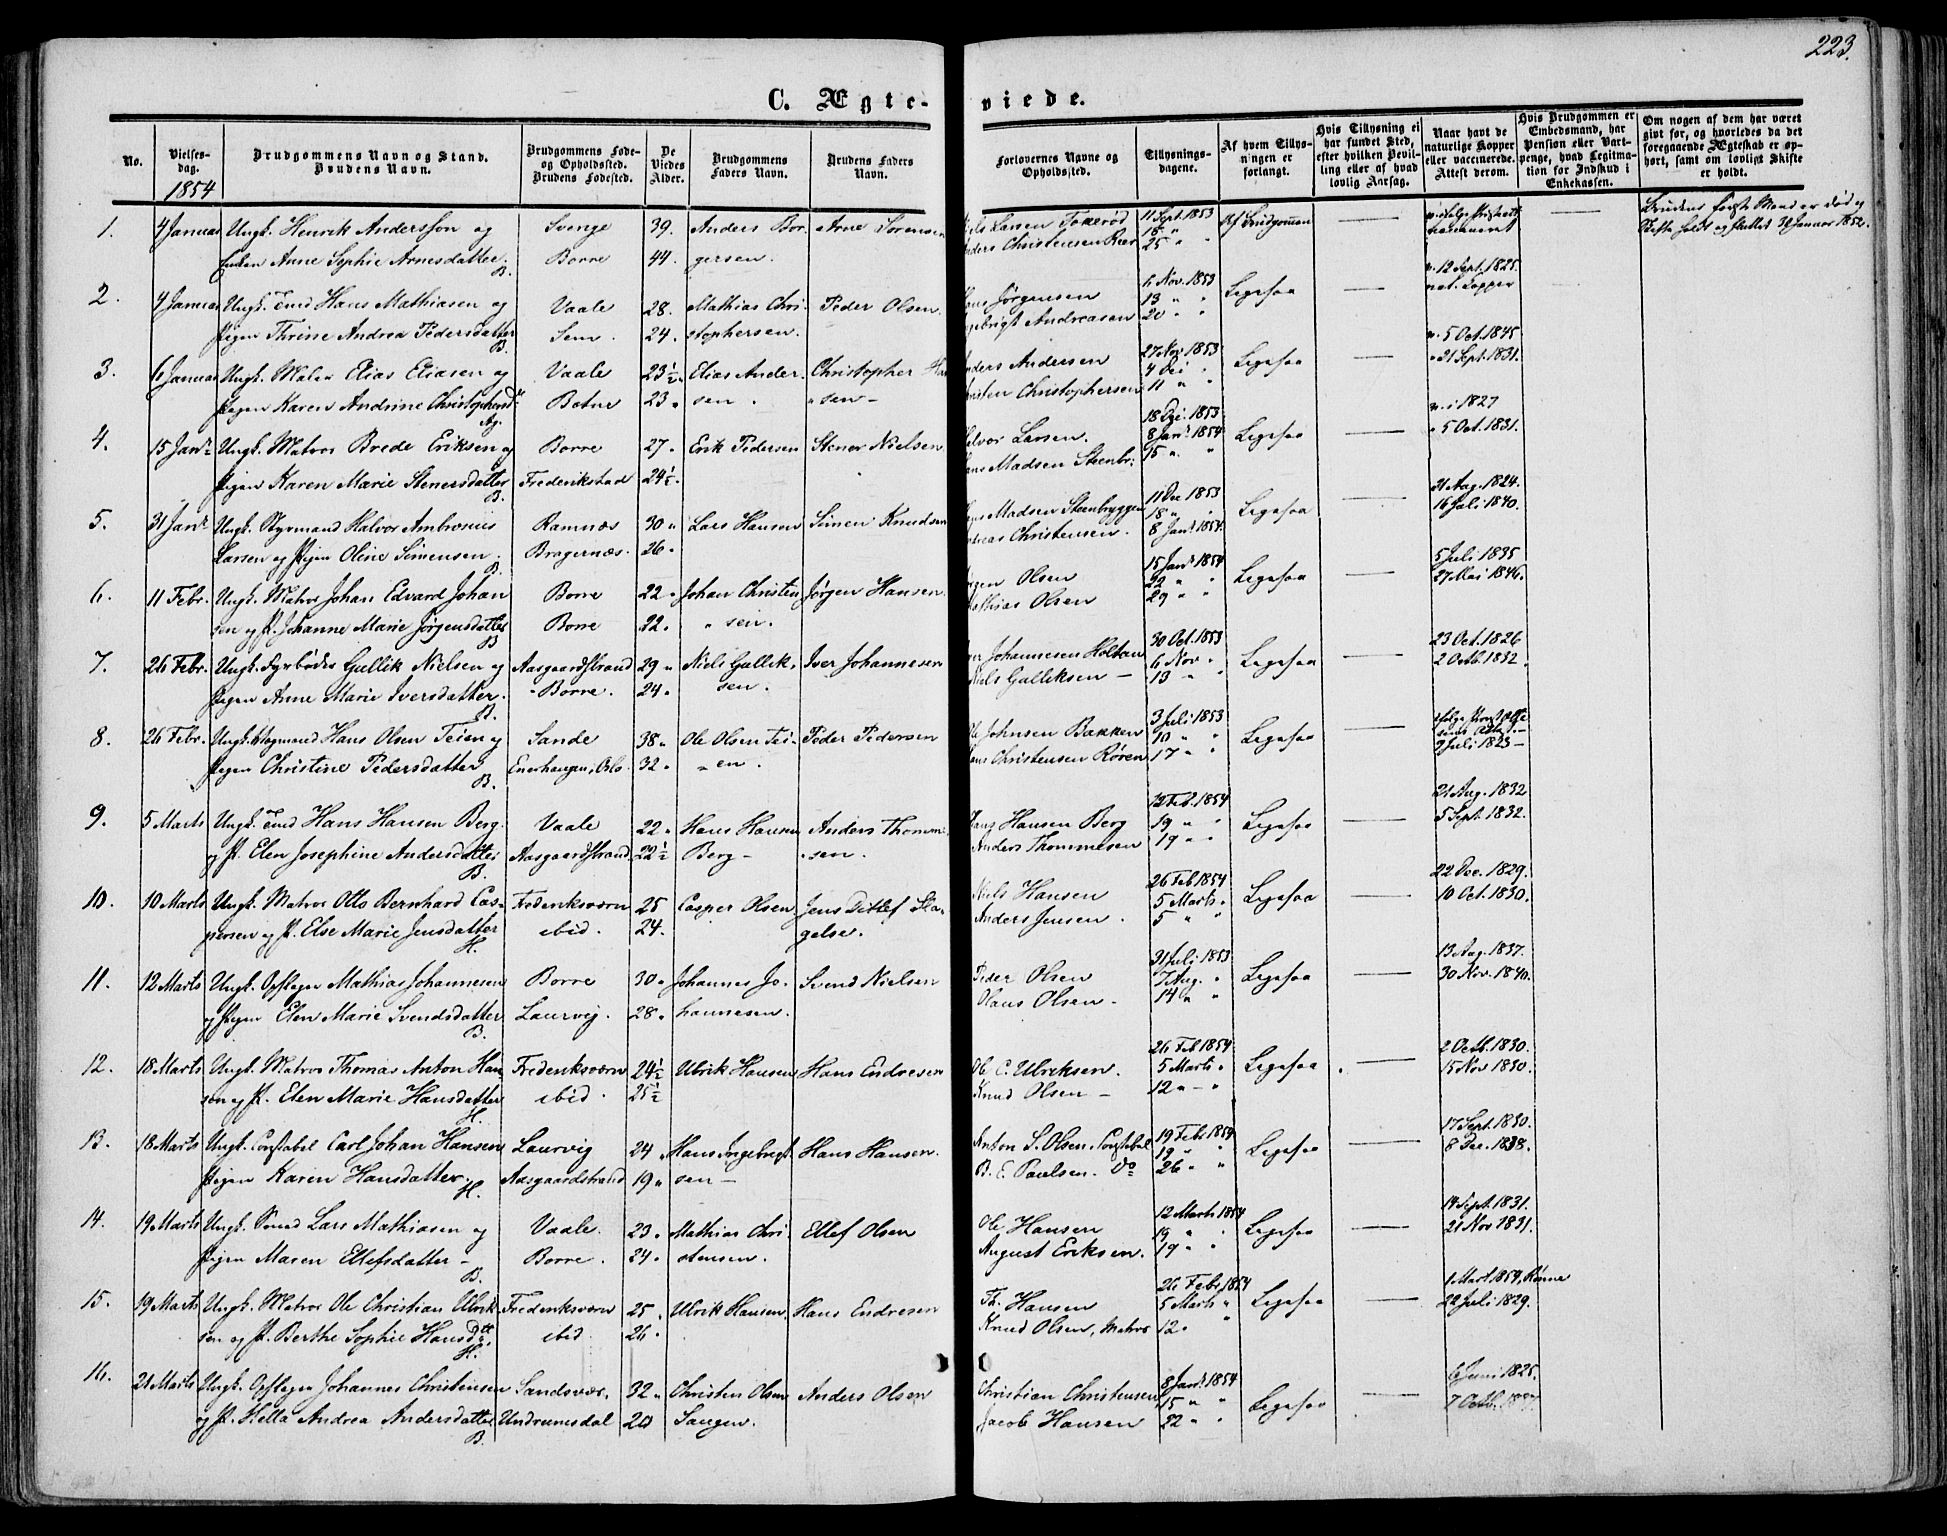 223.
C. Ægteviede.
No.
Vielses-dag.
1854
Brudgommens Navn og Stand.
Brudens Navn.
Brudgommens Føde- og Opholdssted.
Brudens Fødested.
De Viedes Alder.
Brudgommens Faders Navn.
Brudens Faders Navn.
Forlovernes Navne og Opholdssted.
Tillysnings-dagene.
Af hvem Tillysningen er forlangt.
Hvis Tillysning ei har fundet Sted, efter hvilken Bevilling eller af hvad lovlig Aarsag.
Naar havt de naturlige Kopper eller vaccinerede. Attest derom.
Hvis Brudgommen er Embedsmand, har Pension eller Vartpenge, hvad Legitimation for Indskud i Enkekassen.
Om nogen af dem har været givt for, og hvorledes da det foregaaende Ægteskab er ophørt, samt om lovligt Skifte er holdt.
1. 4 Januar Ungk. Henrik Andersson og Svenge 39. Anders Bor- Arne Sorensen Larsen Toverød 11 Sept. 1853 Af Brudgommen Brudens første Mand er død og
Enken Anne Sophie Arnesdatter. Borre 44. gersen. Christensen 25 " " Skifte holdt og sluttet Januar 1852.
B.
2. 4 Januar Ungk. Hans Mathiasen og Vaale 28. Mathias Chri- Peder Olsen. Jørgensen 6 Nov. 1853 13 " " Ligesaa 12 Sept. 1825.
Pigen Thrine Andrea Pedersdatter Sem 24. stophersen. Andreasen 20 " " nat. Kopper
B.
3. 6 Januar Ungk. Maler Elias Eliasen og Vaale 23½ Elias Ander- Christopher Andersen 27 Nov. 1853 4 Dec " Ligesaa 5 Oct. 1845
Pigen Karen Andrine Botne 23 " sen. sen - Christophersen 11 " " 21 Sept. 1831.
4. 15 Janr. Ungk. Matros Brede Eriksen og Borre 27 " Erik Pedersen Stener Nielsen Larsen. 18 Dec. 1853 8 Janr. 1854 Ligesaa i 1827
Pigen Karen Marie Stenersdatter Frederikstad 24½. Madsen 15 " " 5 Oct. 1831.
B.
5. 31 Janr. Ungk. Styrmand Halvor Ambrosius Ramnæs 30 " Lars Hansen Simen Knudsen Madsen Steenbryggen 11 Dec 1853 18 " " Ligesaa 21 Aug. 1824.
Larsen og Pigen Oline Simensen. Bragernæs. 26 " Christensen. 8 Janr. 1854. 16 Juli 1840.
B.
6. 11 Febr. Ungk. Matros Johan Edvard Johan Borre 22 " Johan Christen Jørgen Hansen. Olsen 15 Janr. 1854 22 " " Ligesaa 5 Juli 1835
sen og P. Johanne Marie Jørgensdatter Borre 22. " sen. Mathias Olsen 29 " " 27 Mai 1846.
B
7. 26 Febr. Ungk. Fyrbøder Gullik Nielsen og Aasgaardstrand 29 " Niels Gullik- Iver Johannesen Johannesen Holtan 30 Oct. 1853 6 Nov " Ligesaa 23 Oct. 1826
Pigen Anne Marie Iversdatter. Borre. 24 " sen. Niels Gulliksen - 13 " " 2 Octb. 1832.
B.
8. 26 Febr. Ungk. Hans Olsen Teien og Sande 38 " Ole Olsen Tei- Peder Pedersen Ole Johnsen Bakken 3 Juli 1853 10 " " Ligesaa
Pigen Christine Pedersdatter Enerhaugen, Oslo. 32 " " en. Christensen Røren 17 " " 9 Juli 1823 -
B.
9. 5 Marts Ungk. Hans Hansen Berg. Vaale 22 " Hans Hansen Anders Thomme- Hans Hansen Berg 12 Feb. 1854 19 " " Ligesaa 21 Aug. 1832
og P. Elen Josephine Andersdatter Aasgaardstrand 22½ Berg - " sen. Anders Thommesen 19 " " 5 Sept. 1832.
B.
10. 10 Marts Ungk. Matros Otto Bernhard Cas- Frederiksværn 25 Casper Olsen Jens Ditlef Sla- Niels Hansen 26 Feb 1854 5 Marts " Ligesaa 22 Dec. 1829.
persen og P. Else Marie Jensdatter ibid. 24. gelse. Anders Jensen. 5 " " 10 Oct. 1830.
H.
11. 12 Marts Ungk. Opsleger Mathias Johannesen Borre 30 " Johannes Jo- Svend Nielsen Peder Olsen 31 Juli 1853 7 Aug. " Ligesaa 13 Aug. 1837.
og Pigen Elen Marie Svendsdatter Laurvig. 28 " hannesen. Olaus Olsen - 14 " " 30 Nov. 1840.
B.
12. 18 Marts Ungk. Matros Thomas Anton Han Frederiksværn 24½ Ulrik Hansen Hans Endresen Ole C. Ulriksen. 26 Feb 1854 5 Marts " Ligesaa 2 Octb. 1830.
sen og P. Elen Marie Hansdatter ibid. 25½ Knud Olsen - 12 " - " 15 Nov 1830.
H.
13. 18 Marts Ungk. Constabel Carl Johan Hansen Laurvig 24 " Hans Ingebrigt- Hans Hansen. Anton S. Olsen. Constabel 19 Febr 1854 19 " " Ligesaa 17 Sept. 1830.
Pigen Karen Hansdatter. Aasgaardstrand 19 " sen - B. E. Paulsen. Do 26 " " 8 Dec. 1838.
H.
14. 19 Marts Ungk. Lars Mathiasen og Vaale. 23 " Mathias Chri- Ellef Olsen Ole Hansen 12 Marts 1854 19 " " Ligesaa 14 Sept. 1831.
Pigen Maren Ellefsdatter - Borre. 24 " stensen. August Eriksen. 19 " " 21 Nov 1831.
B.
15. 19 Marts Ungk. Matros Ole Christian Ulrik- Frederiksværn 25 " Ulrik Hansen. Hans Endresen Th. Hansen 26 Febr 1854 5 Marts " Ligesaa 1 Mart. 1854, Rønne
sen og P. Berthe Sophie Hansdtt. ibid. 26 " Knud Olsen, Matros 12 " " 22 Juli 1829.
H.
16. 21 Marts Ungk. Opsleger Johannes Christensen Sandsvær. 32 " Christen Olsen Anders Olsen Christian Christensen 8 Janr. 1854 15 " " Ligesaa 6 Juni 1825.
og P. Hella Andrea Andersdatter Undrumsdal 20 Saugen. Jacob Hansen 22 " "
B.